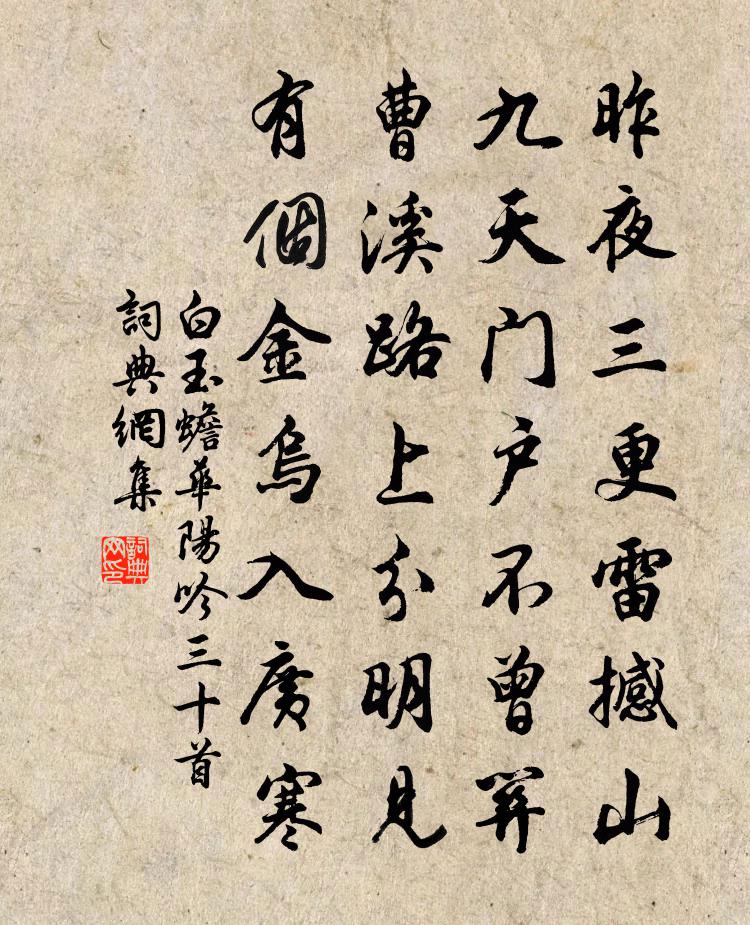 昨夜三更雷撼山
九天门户不曾關
曹溪路上分明見
有個金烏入廣寒
白玉蟾華陽吟三十首
詞典網集
詞典网印